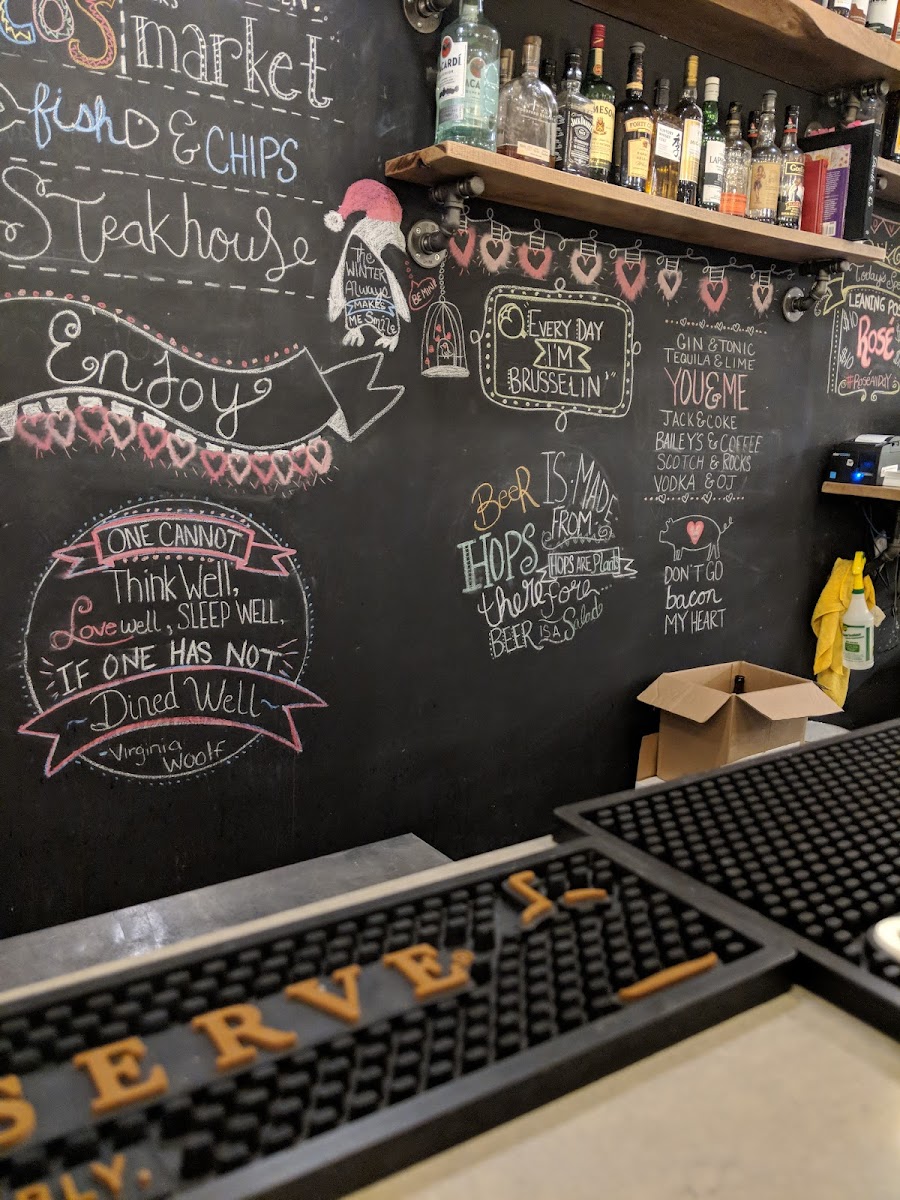 COS market
fish & CHIPS
Steakhouse
Enjoy
ONE CANNOT
Think Well,
Love well, SLEEP WELL,
IF ONE HAS NOT
~ Dined Well ~
-Virginia
Woolf
the
WINTER
Always
MAKES
ME Smile
BE MINE
EVERY DAY
I'M
BRUSSELIN'"
BEER IS MADE
FROM
HOPS
HOPS ARE Plants
therefore...
BEER IS A Salad
GIN & TONIC
TEQUILA & LIME
YOU & ME
JACK & COKE
BAILEY'S & COFFEE
SCOTCH & ROCKS
VODKA & OJ
DON'T GO
bacon
MY HEART
Today's
LEANING POS
Rosé
#ROSEALLDAY
CARDÍ
JACK DANIEL'S
MESON
FORTY
LAPH
SERVE
RLY.